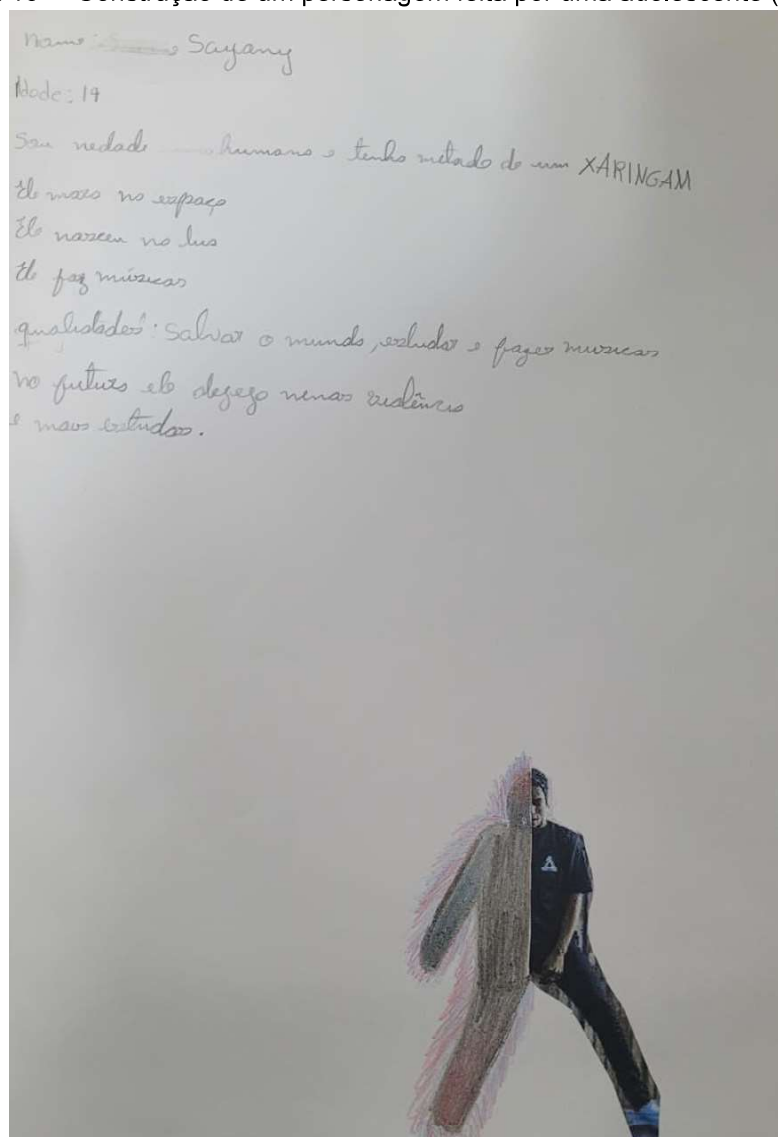 Construção de um personagem feita por uma adolescente (
Nome: Sayany
Idade: 19
Sou nedade humano e tenho metade de um XARINGAM
Ele mora no espaço
Ele nasceu no lua
Ele faz músicas
qualidades: Salvar o mundo, estudar e fazer musicas
no futuro ele dezego menas violência
e mais estudos.